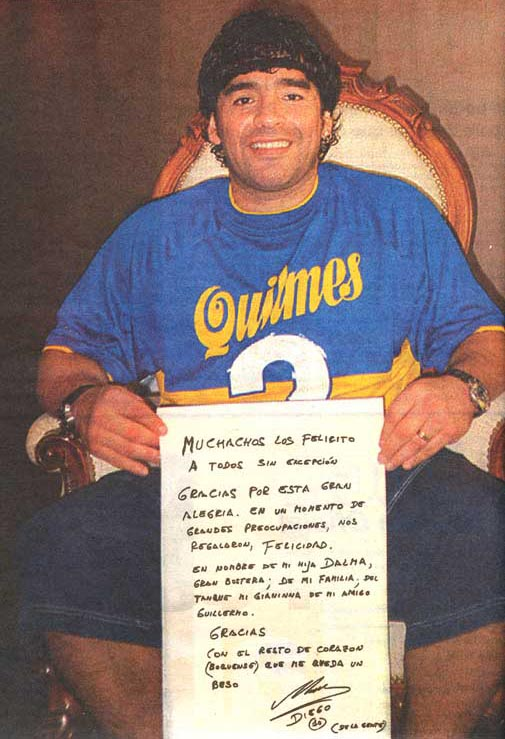 Quilmes
2
MUCHACHOS LOS FELICITO
A TODOS SIN EXCEPCIÓN
GRACIAS POR ESTA GRAN
ALEGRIA. EN UN MOMENTO DE
GRANDES PREOCUPACIONES, NOS
REGALARON, FELICIDAD.
EN NOMBRE DE MI HIJA DALMA,
GRAN BOSTERA; DE MI FAMILIA, DEL
TANQUE MI GIANINNA DE MI AMIGO
GUILLERMO.
GRACIAS
CON EL RESTO DE CORAZON
(BOQUENSE) QUE ME QUEDA UN
BESO
DIEGO
10 (DE LA GENTE)